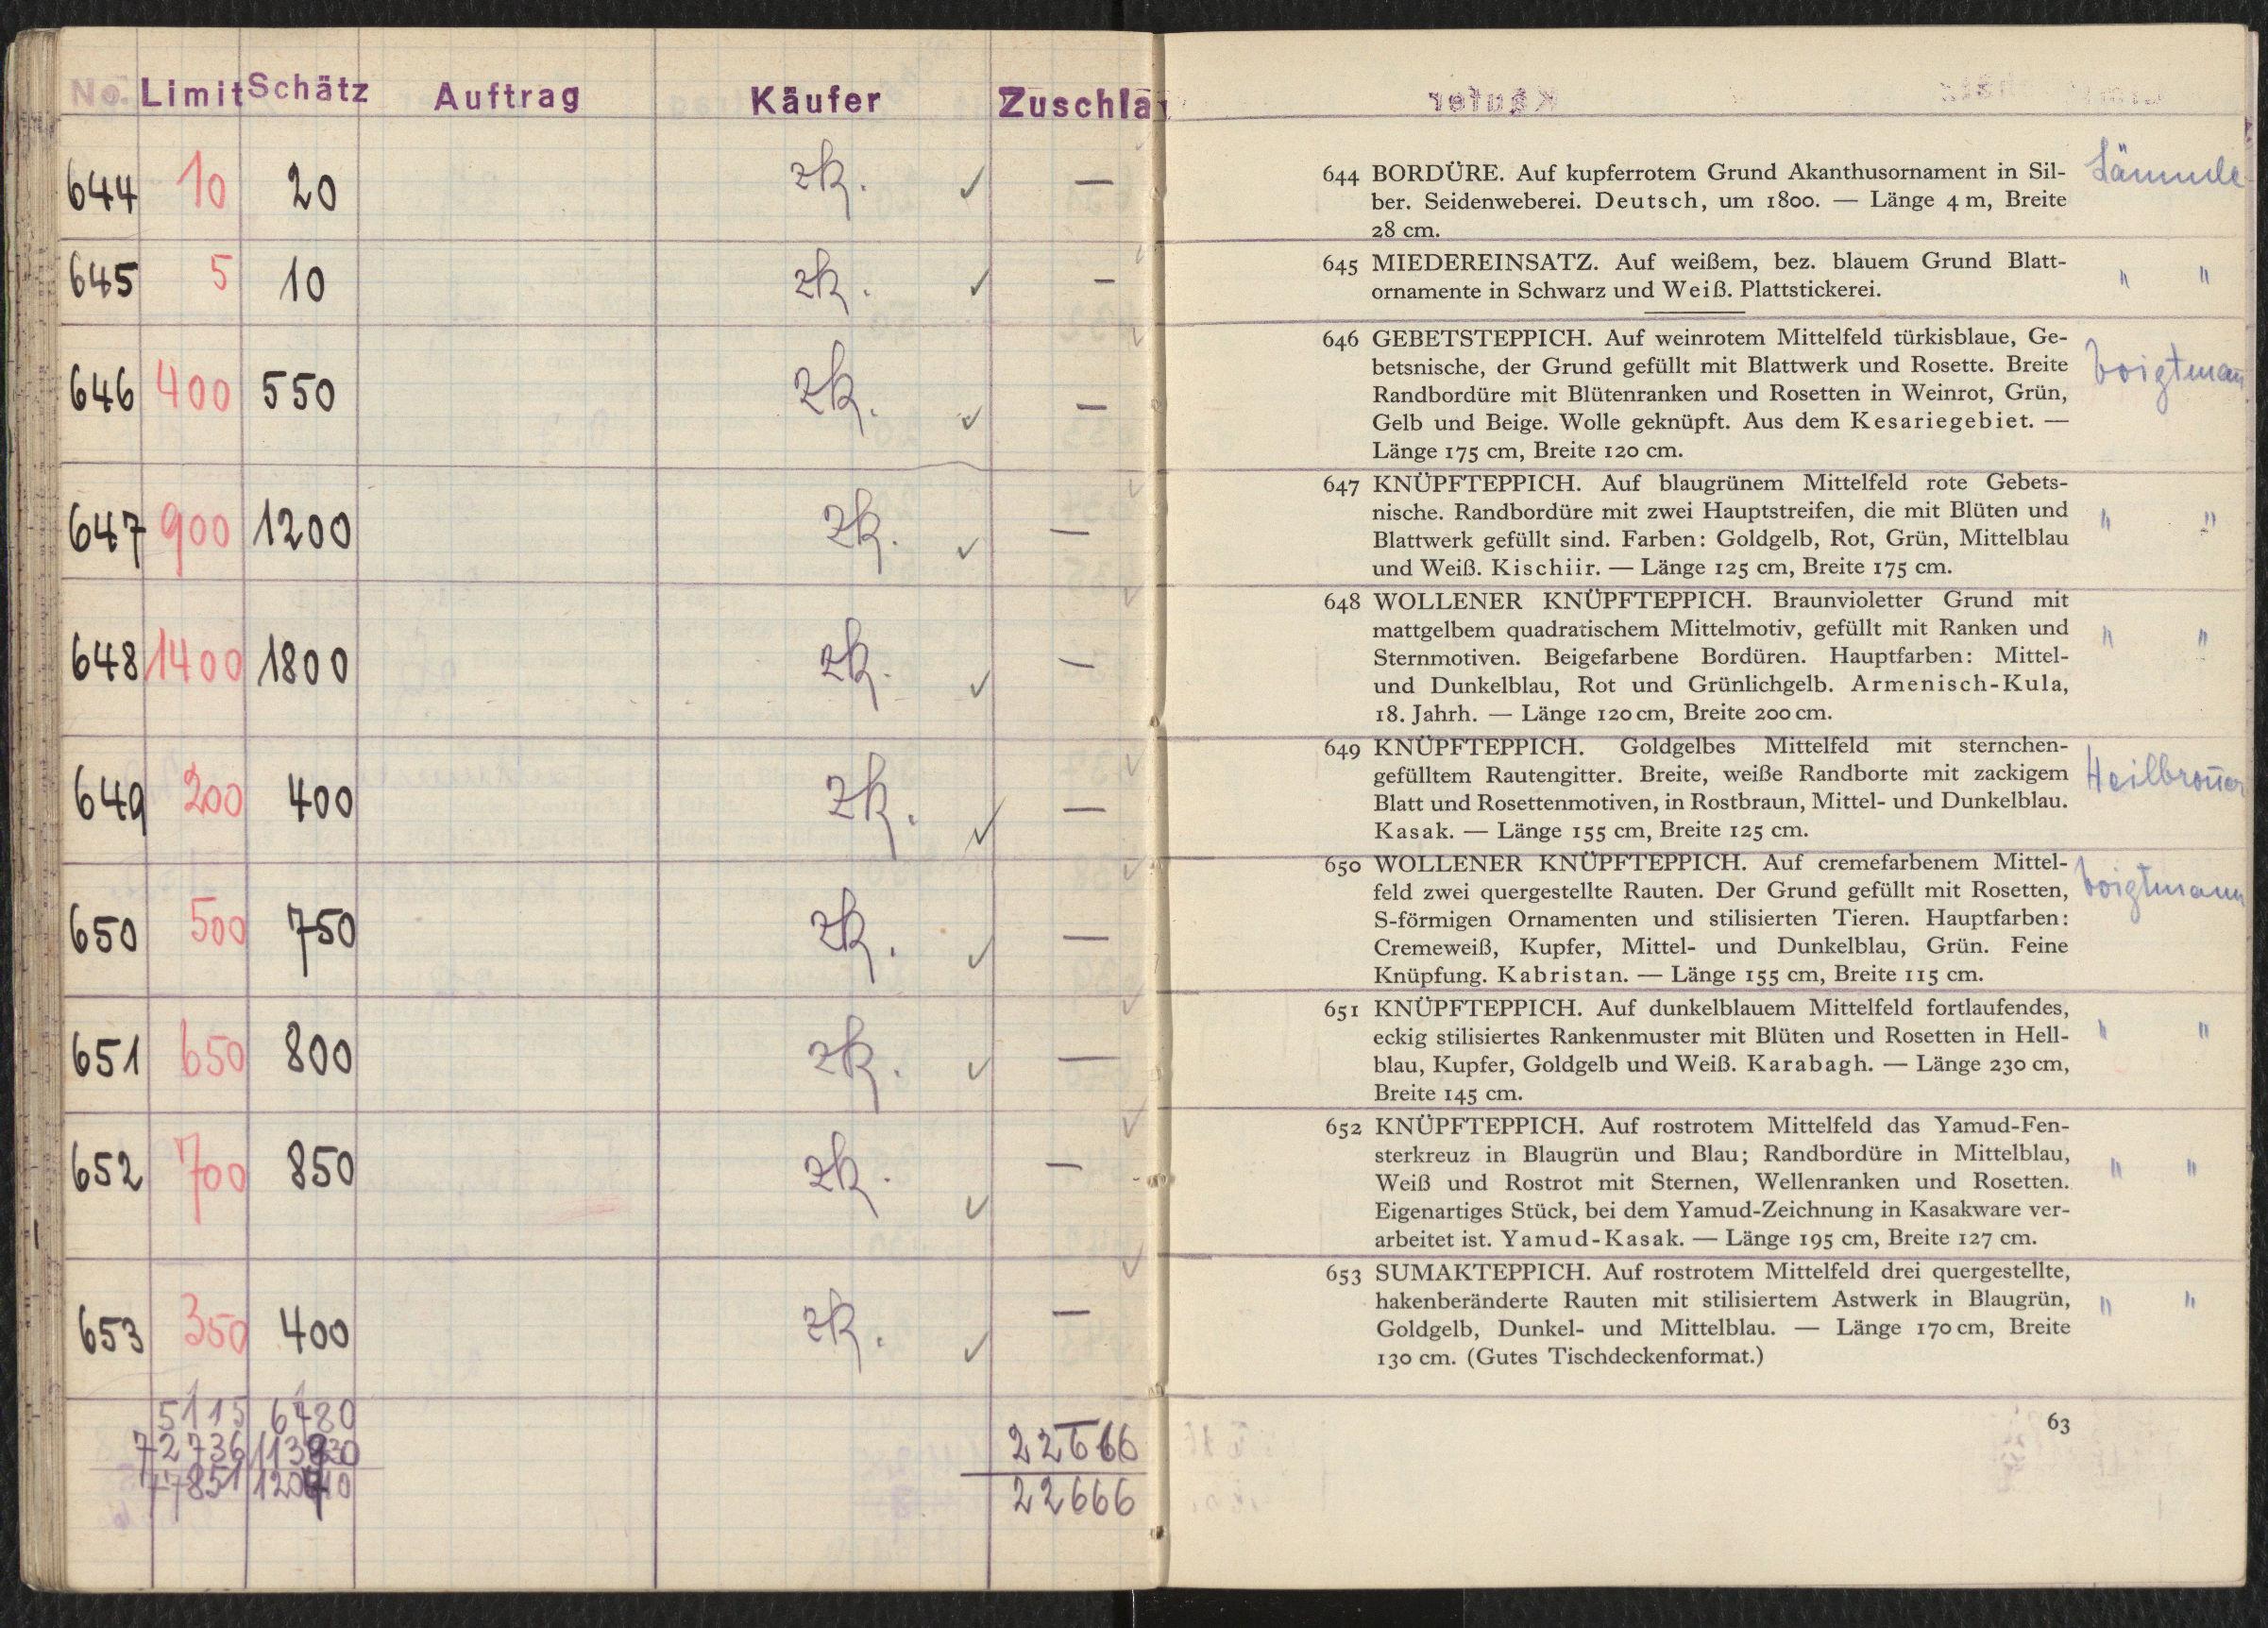 No. Limit Schätz Auftrag Käufer Zuschla
644 10 20 zk. ✓ —
645 5 10 zk. ✓ —
646 400 550 zk. ✓ —
647 900 1200 zk. ✓ —
648 1400 1800 zk. ✓ —
649 200 400 zk. ✓ —
650 500 750 zk. ✓ —
651 650 800 zk. ✓ —
652 700 850 zk. ✓ —
653 350 400 zk. ✓ —
5115 6780
72736 22666
77851 22666
644 BORDÜRE. Auf kupferrotem Grund Akanthusornament in Sil- Lämmle
ber. Seidenweberei. Deutsch, um 1800. — Länge 4 m, Breite
28 cm.
645 MIEDEREINSATZ. Auf weißem, bez. blauem Grund Blatt- " "
ornamente in Schwarz und Weiß. Plattstickerei.
646 GEBETSTEPPICH. Auf weinrotem Mittelfeld türkisblaue, Ge-
betsnische, der Grund gefüllt mit Blattwerk und Rosette. Breite Voigtmañ
Randbordüre mit Blütenranken und Rosetten in Weinrot, Grün,
Gelb und Beige. Wolle geknüpft. Aus dem Kesariegebiet. —
Länge 175 cm, Breite 120 cm.
647 KNÜPFTEPPICH. Auf blaugrünem Mittelfeld rote Gebets-
nische. Randbordüre mit zwei Hauptstreifen, die mit Blüten und " "
Blattwerk gefüllt sind. Farben: Goldgelb, Rot, Grün, Mittelblau
und Weiß. Kischiir. — Länge 125 cm, Breite 175 cm.
648 WOLLENER KNÜPFTEPPICH. Braunvioletter Grund mit
mattgelbem quadratischem Mittelmotiv, gefüllt mit Ranken und " "
Sternmotiven. Beigefarbene Bordüren. Hauptfarben: Mittel-
und Dunkelblau, Rot und Grünlichgelb. Armenisch-Kula,
18. Jahrh. — Länge 120 cm, Breite 200 cm.
649 KNÜPFTEPPICH. Goldgelbes Mittelfeld mit sternchen-
gefülltem Rautengitter. Breite, weiße Randborte mit zackigem Heilbroñer
Blatt und Rosettenmotiven, in Rostbraun, Mittel- und Dunkelblau.
Kasak. — Länge 155 cm, Breite 125 cm.
650 WOLLENER KNÜPFTEPPICH. Auf cremefarbenem Mittel-
feld zwei quergestellte Rauten. Der Grund gefüllt mit Rosetten, Voigtmann
S-förmigen Ornamenten und stilisierten Tieren. Hauptfarben:
Cremeweiß, Kupfer, Mittel- und Dunkelblau, Grün. Feine
Knüpfung. Kabristan. — Länge 155 cm, Breite 115 cm.
651 KNÜPFTEPPICH. Auf dunkelblauem Mittelfeld fortlaufendes,
eckig stilisiertes Rankenmuster mit Blüten und Rosetten in Hell- " "
blau, Kupfer, Goldgelb und Weiß. Karabagh. — Länge 230 cm,
Breite 145 cm.
652 KNÜPFTEPPICH. Auf rostrotem Mittelfeld das Yamud-Fen-
sterkreuz in Blaugrün und Blau; Randbordüre in Mittelblau, " "
Weiß und Rostrot mit Sternen, Wellenranken und Rosetten.
Eigenartiges Stück, bei dem Yamud-Zeichnung in Kasakware ver-
arbeitet ist. Yamud-Kasak. — Länge 195 cm, Breite 127 cm.
653 SUMAKTEPPICH. Auf rostrotem Mittelfeld drei quergestellte,
hakenberänderte Rauten mit stilisiertem Astwerk in Blaugrün, " "
Goldgelb, Dunkel- und Mittelblau. — Länge 170 cm, Breite
130 cm. (Gutes Tischdeckenformat.)
63